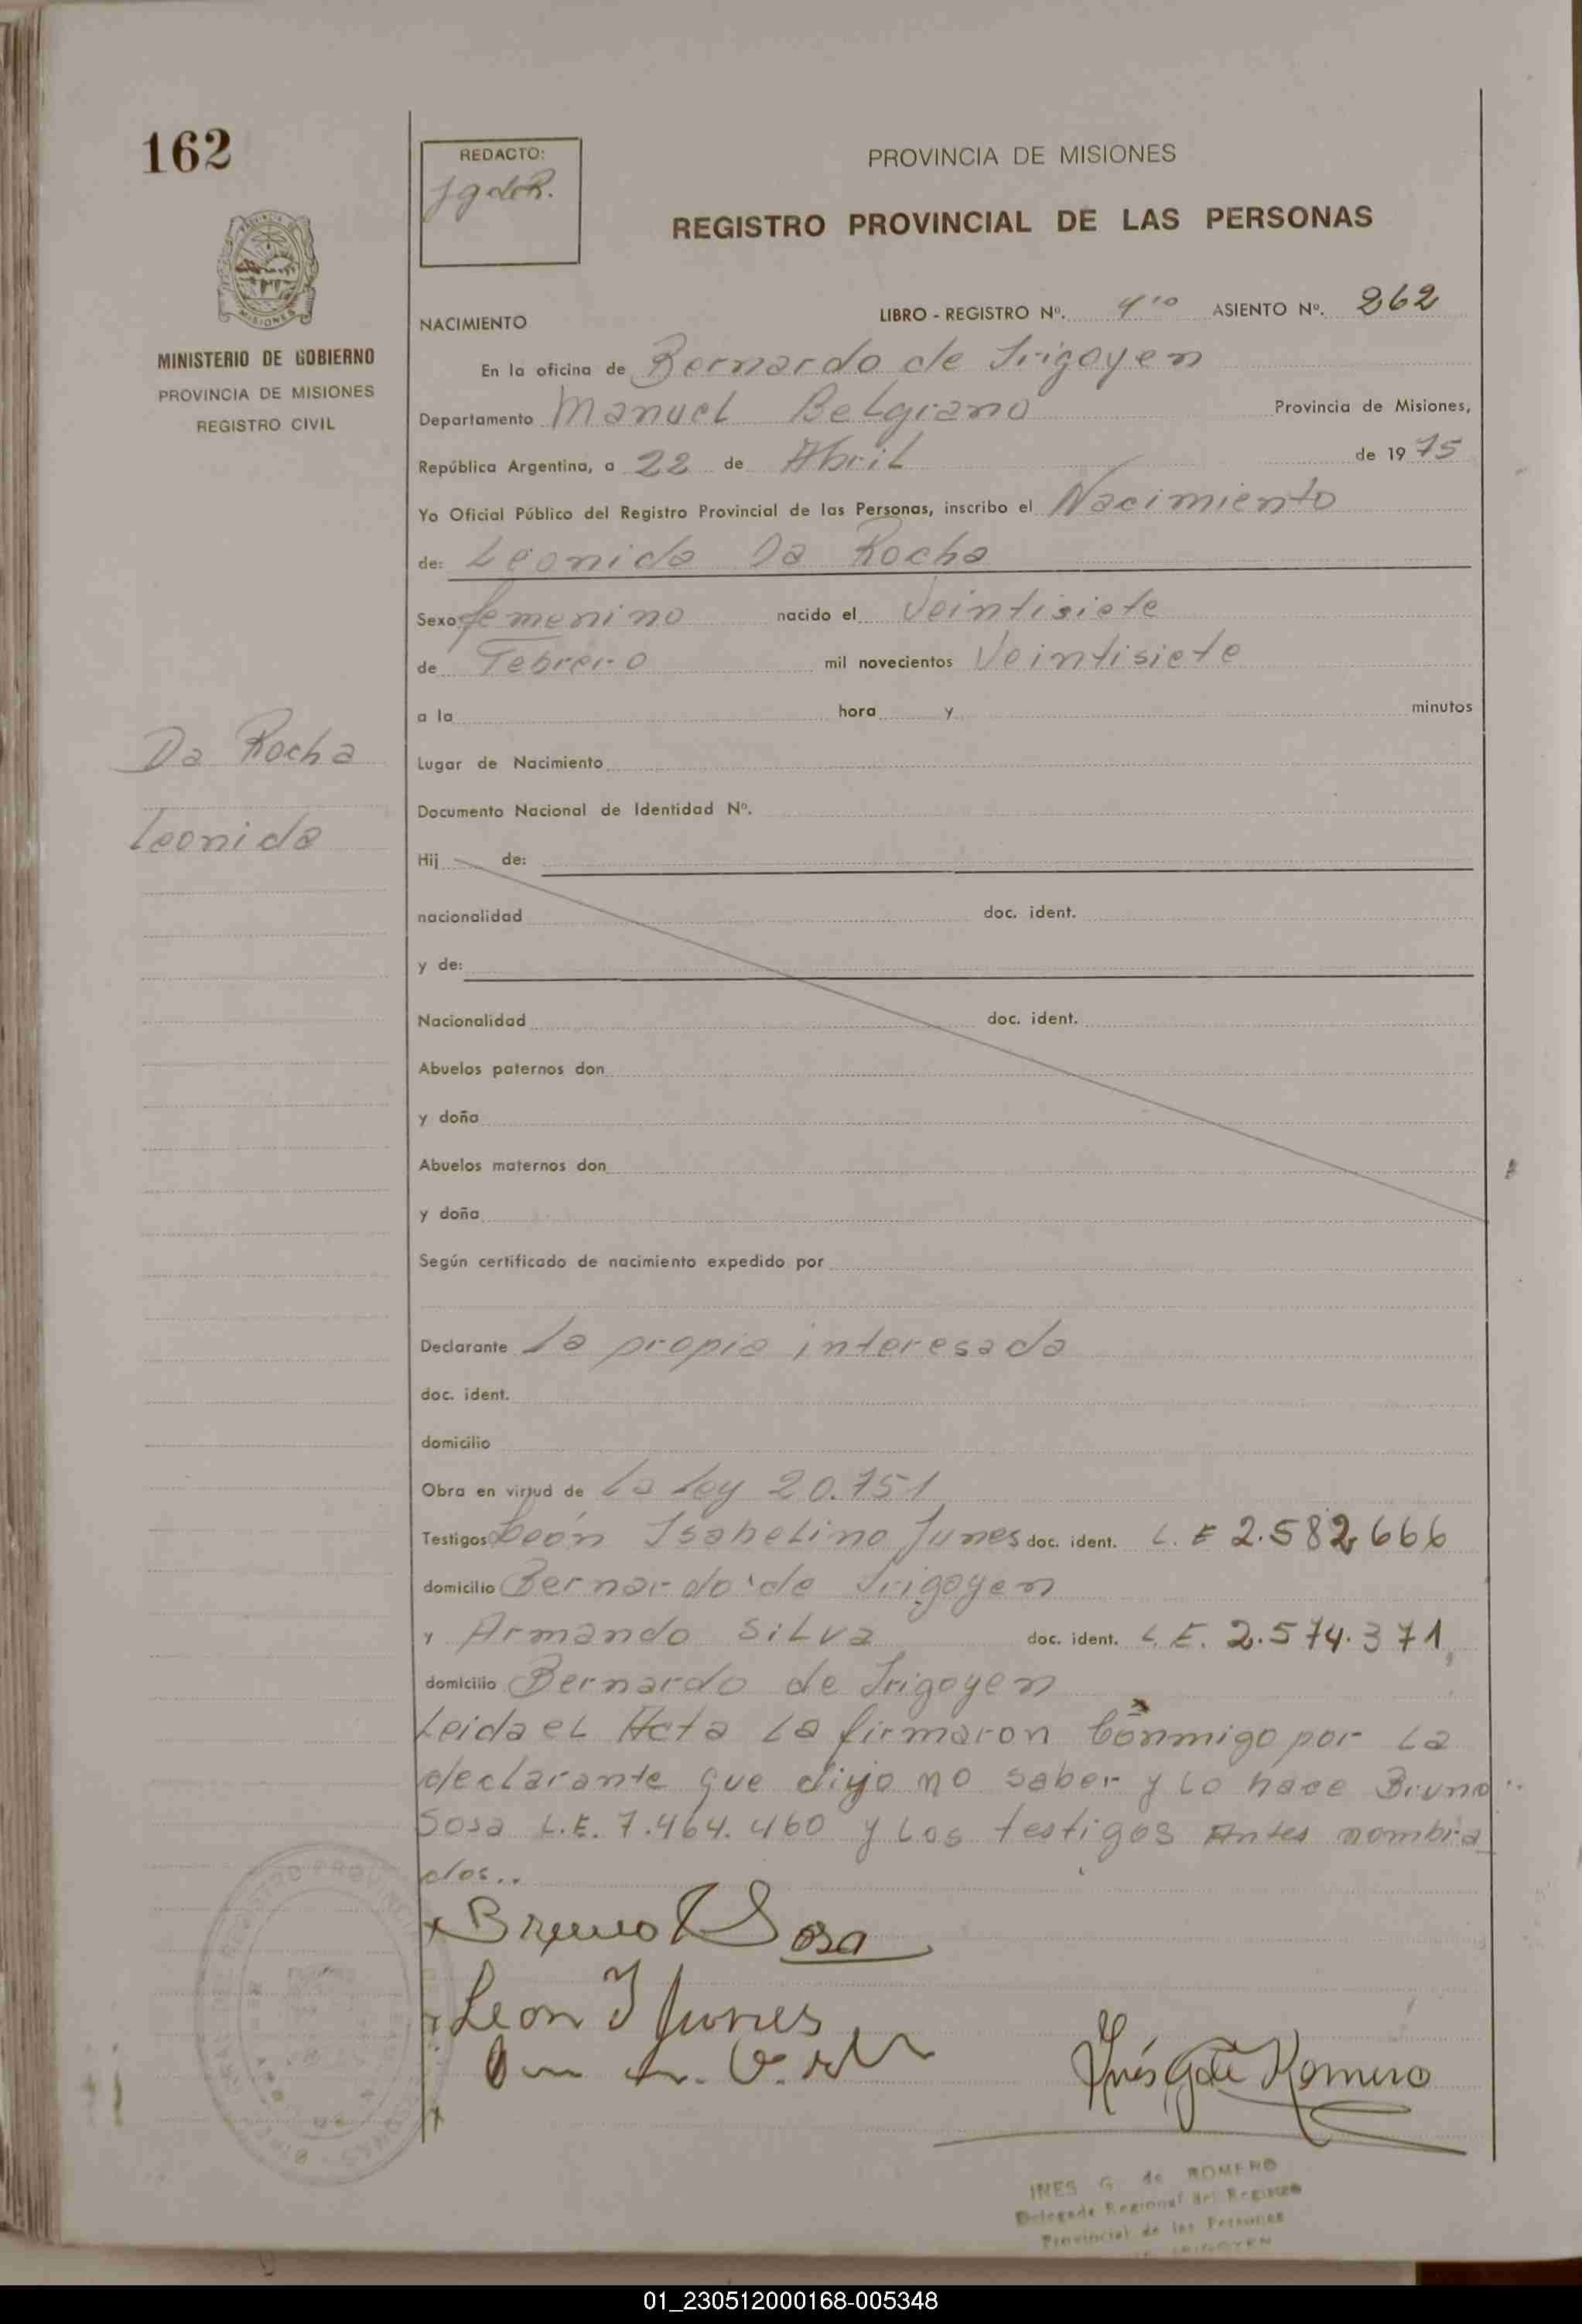 162
REDACTO:
PROVINCIA DE MISIONES
REGISTRO PROVINCIAL DE LAS PERSONAS
MISIONES
MINISTERIO DE GOBIERNO
PROVINCIA DE MISIONES
REGISTRO CIVIL
NACIMIENTO
LIBRO - REGISTRO Nº. 4to ASIENTO Nº. 262
En la oficina de Bernardo de Irigoyen
Departamento Manuel Belgrano Provincia de Misiones,
República Argentina, a 22 de Abril de 1975
Yo Oficial Público del Registro Provincial de las Personas, inscribo el Nacimiento
de: Leonida Da Rocha
Sexo femenino nacido el Veintisiete
de Febrero mil novecientos Veintisiete
a la hora y minutos
Da Rocha
Leonida
Lugar de Nacimiento
Documento Nacional de Identidad Nº.
Hij de:
nacionalidad doc. ident.
y de:
Nacionalidad doc. ident.
Abuelos paternos don
y doña
Abuelos maternos don
y doña
Según certificado de nacimiento expedido por
Declarante La propia interesada
doc. ident.
domicilio
Obra en virtud de La Ley 20.751
Testigos León Isabelino Junes doc. ident. L.E 2.582666
domicilio Bernardo de Irigoyen
y Armando Silva doc. ident. L.E. 2.574.371,
domicilio Bernardo de Irigoyen
Leida el Acta la firmaron conmigo por la
declarante que dijo no saber y lo hace Bruno
Sosa L.E. 7.464.460 y los testigos Antes nombra
dos..
Bruno Sosa
Leon I Junes
Inés G de Romero
INES G. de ROMERO
Delegada Regional del Registro
Provincial de las Personas
IRIGOYEN
01_230512000168-005348